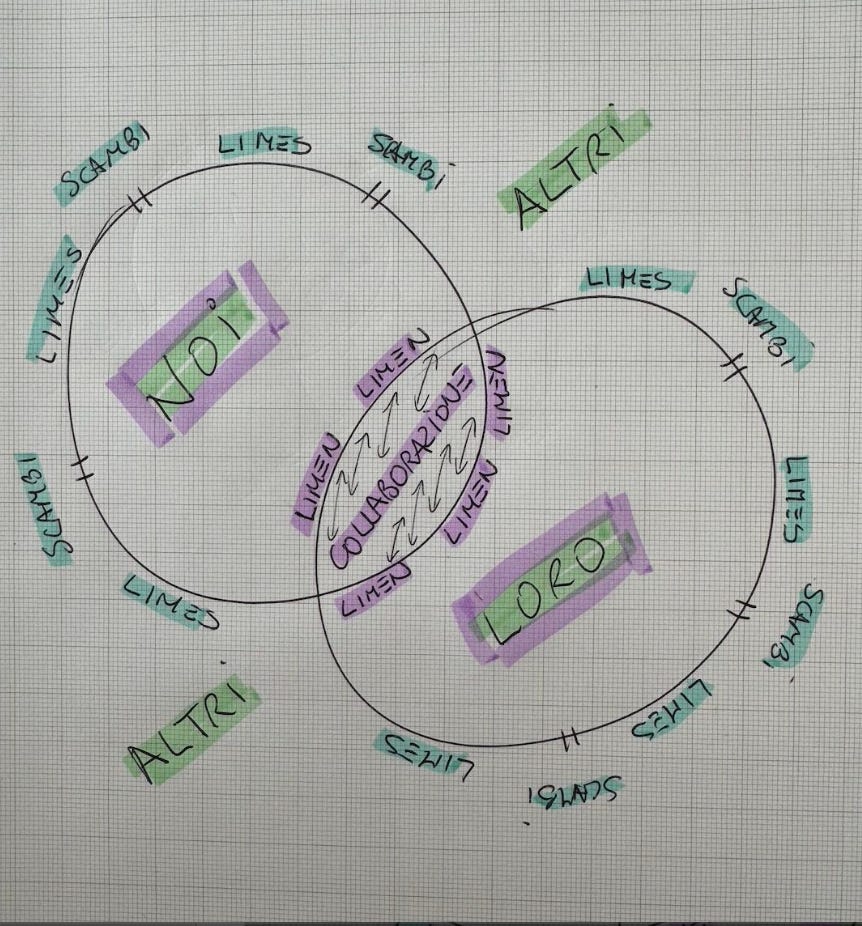 SCAMBI
LIMES
SCAMBI
ALTRI
LIMES
LIMES
SCAMBI
NOI
LIMEN
LIMEN
LIMEN
COLLABORAZIONE
LIMEN
LIMEN
SCAMBI
LIMES
LIMES
LORO
SCAMBI
ALTRI
LIMES
LIMES
SCAMBI